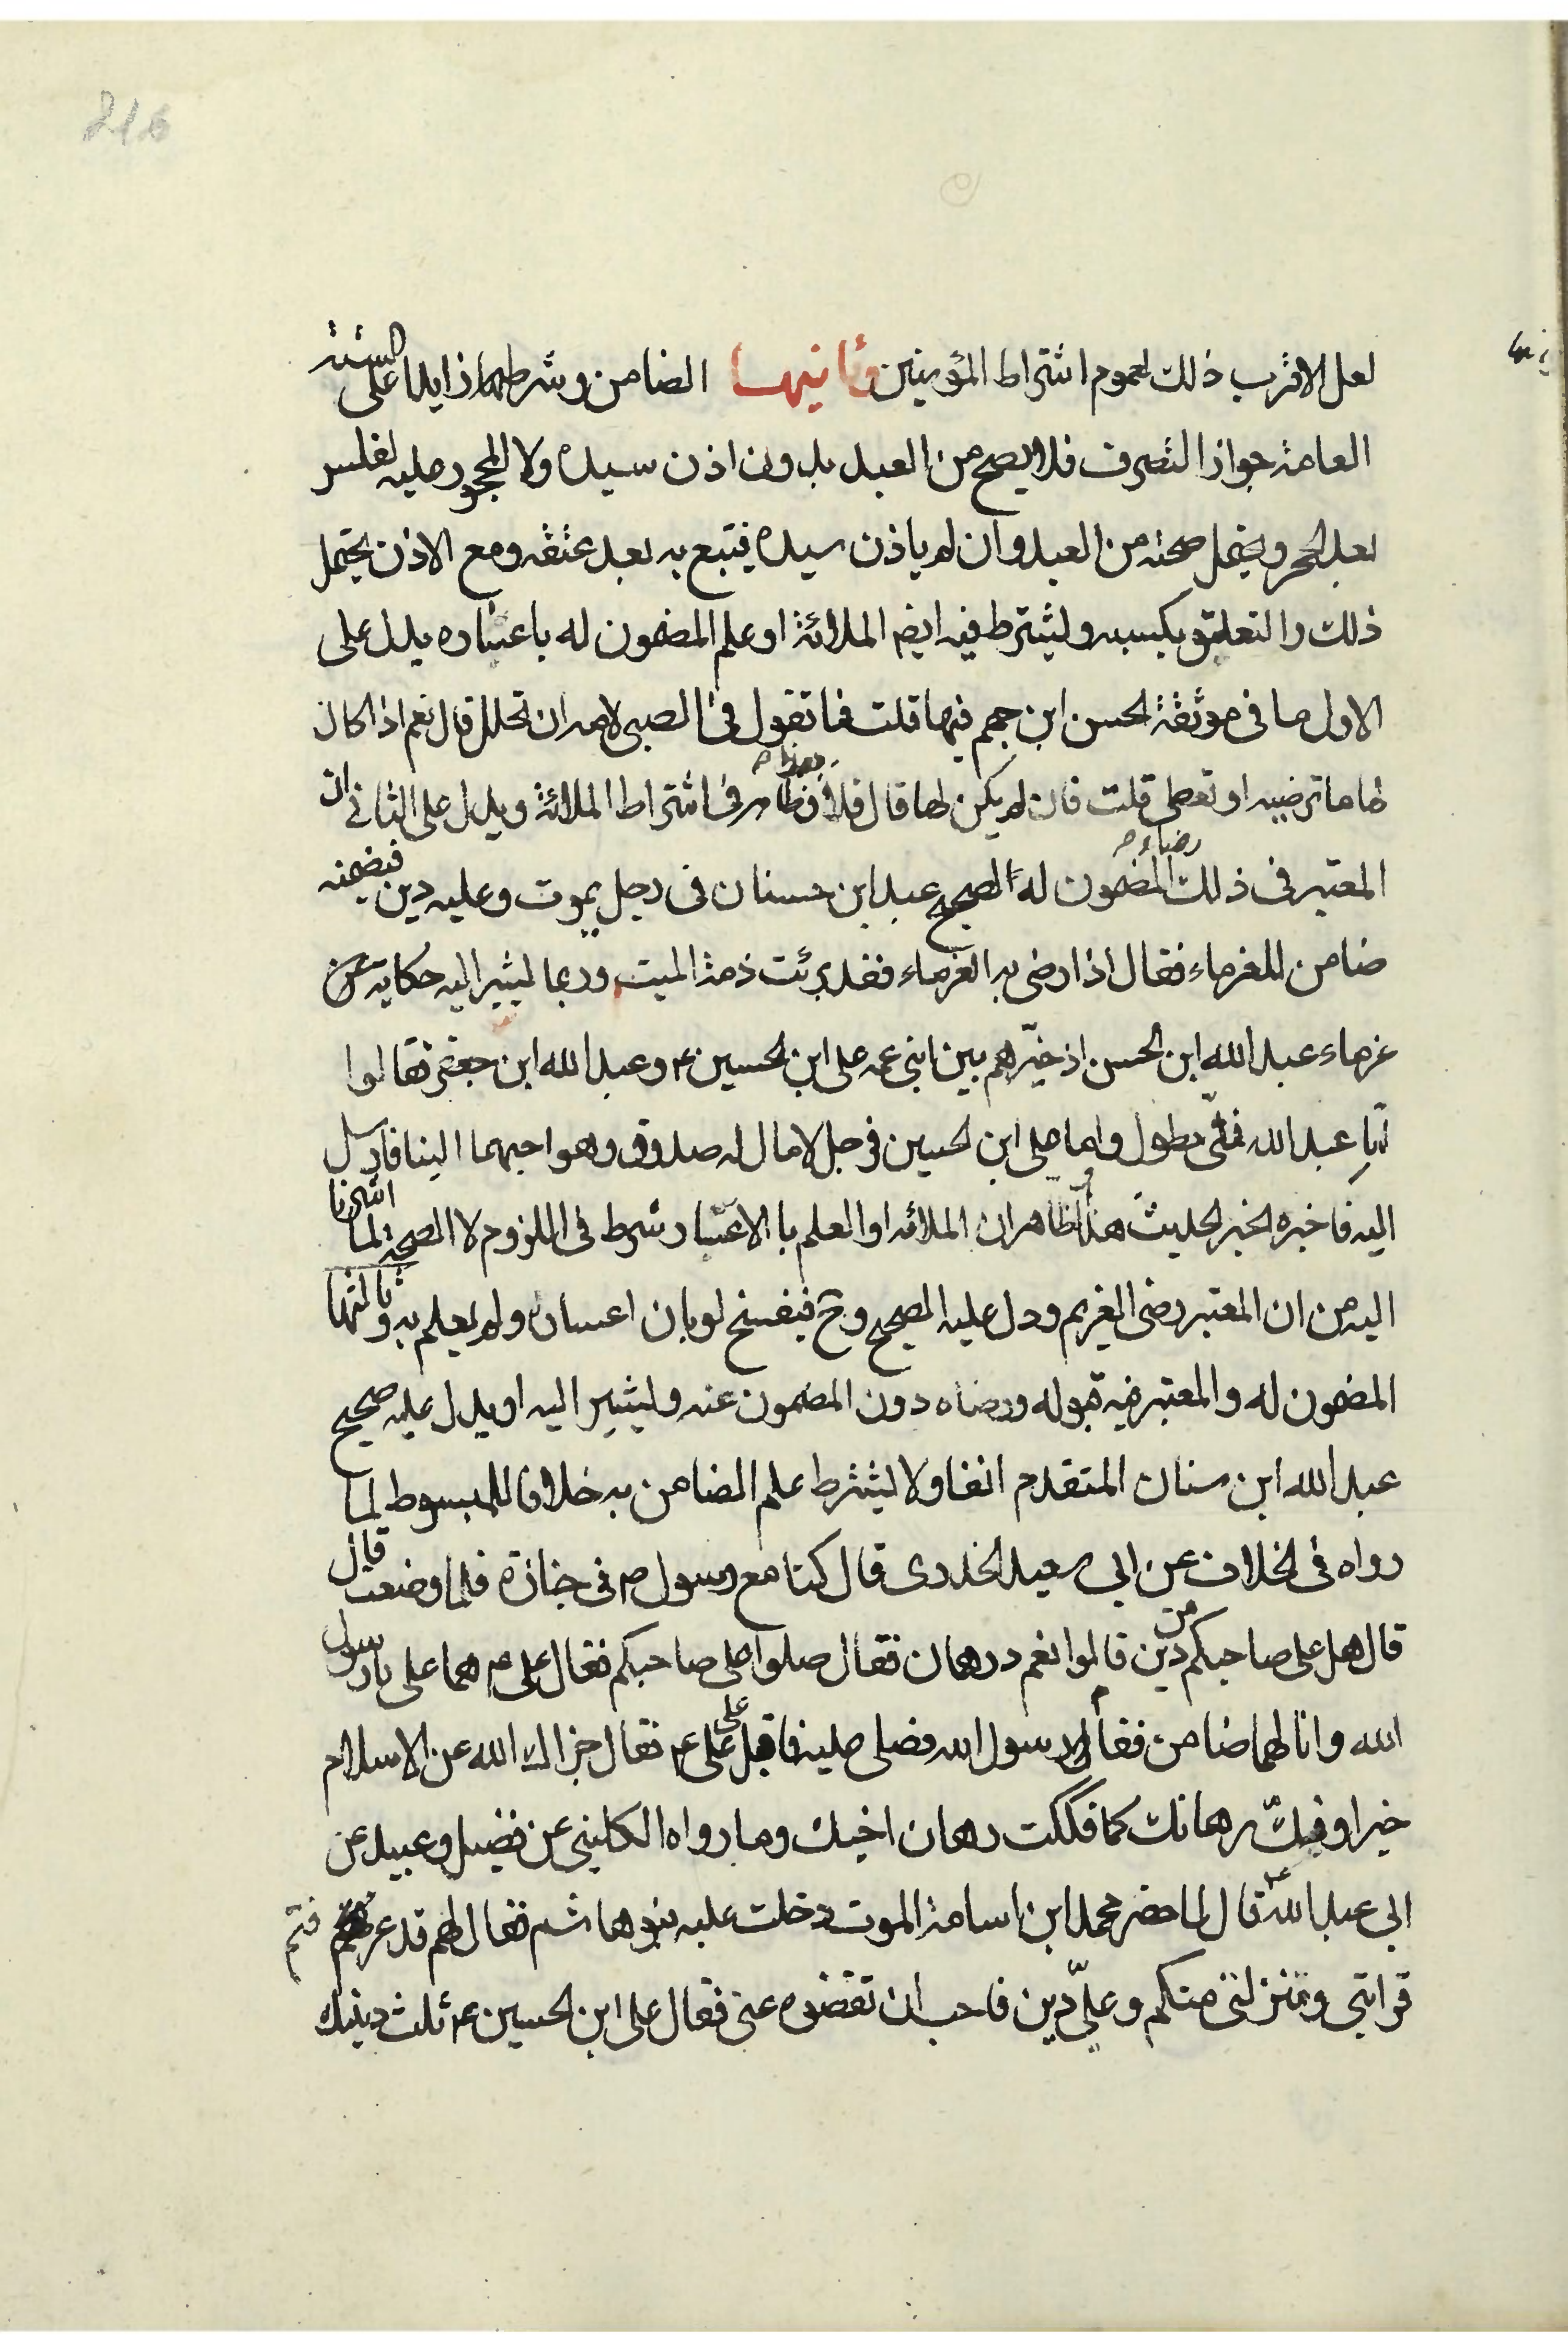 216
لعل الاقرب ذلك لعموم اشتراط المؤمنين وثانيها الضامن وشرطهما زايدا على الستة
العامة جواز التصرف فلا يصح من العبد بدون اذن سيده ولا المحجور عليه لفلس
بعد الحجر ويحتمل صحته من العبد وان لم ياذن سيده فيتبع به بعد عتقه ومع الاذن يحتمل
ذلك والتعليق بكسبه وليشترط فيه ايضا الملائة او علم المضمون له باعتباره يدل على
الاول ما في موثقة الحسن ابن جهم فيها قلت فما تقول في الصبي لامه ان تحلل قال نعم اذا كان
لها ما ترضيه او تعطى قلت فان لم يكن لها قال فلا وظاهر في اشتراط الملائة ويدل على الثاني ان
المعتبر في ذلك رضاء المضمون له الصحيح عبد ابن سنان في رجل يموت وعليه دين فيضمنه
ضامن للغرماء فقال اذا رضى به الغرماء فقد برئت ذمة الميت وربما ليشير اليه حكاية عن
غرماء عبد الله ابن الحسن اذ خيّرهم بين ابني عمه على ابن الحسين ع وعبد الله ابن جعفر فقالوا
اما عبد الله فملّى مطول واما على ابن الحسين فرجل لا مال له صدوق وهو احبهما الينا فارسل
اليه فاخبره الخبر الحديث هذا والظاهر ان الملائه او العلم بالاعتبار شرط في اللزوم لا الصحة لما اشرنا
اليه من ان المعتبر رضى الغريم ودل عليه الصحيح وح فيفسخ لو بان اعساره ولم يعلم به وثالثها
المضمون له والمعتبر فيه قبوله ورضاه دون المضمون عنه وليشير اليه او يدل عليه صحيح
عبد الله ابن سنان المتقدم انفا ولا ليشترط علم الضامن به خلافا للمبسوط لما
رواه في الخلاف عن ابي سعيد الخدرى قال كنا مع رسول ص في جنازة فلما وضعت قال
قال هل على صاحبكم من دين قالوا نعم درهمان فقال صلوا على صاحبكم فقال على ع هما على يا رسول
الله وانا لهما ضامن فقام رسول الله فصلى عليه فاقبل على على ع فقال جزاك الله عن الاسلام
خيرا وفك رهانك كما فككت رهان اخيك وما رواه الكليني عن فضيل وعبيد عن
ابي عبد الله ع قال لما حضر محمد ابن اسامة الموت دخلت عليه بنو هاشم فقال لهم قد عرفتم
قرابتي ومنزلتي منكم وعلىّ دين فاحب ان تقضوه عنى فقال على ابن الحسين ع ثلث دينك